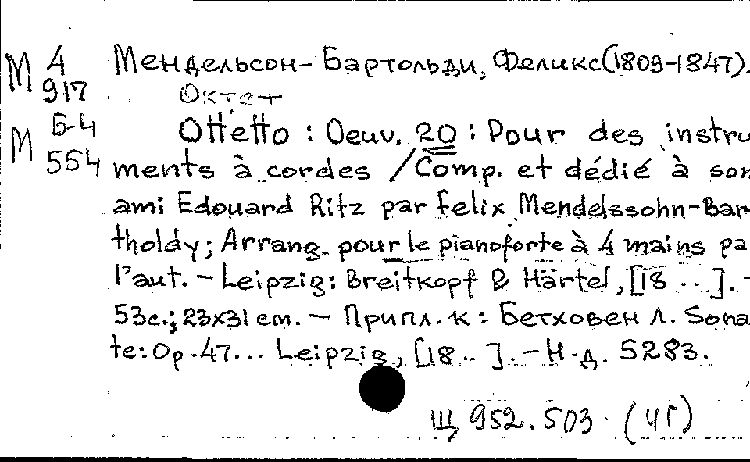 М 4 Мендельсон-Бартольди, Феликс (1809-1847).
917 Октет
М Б-4 Ottetto : Oeuv. 20 : Pour des instru
554 ments à cordes / Comp. et dédié à son
ami Edouard Ritz par Felix Mendelssohn-Bar
tholdy; Arrang. pour le pianoforte à 4 mains pa
l'aut. – Leipzig: Breitkopf & Härtel, [18 ..]. –
53с.; 23x31 cm. – Припл. к: Бетховен Л. Sona
te: Op. 47... Leipzig, [18..]. – Н.д. 5283.
Щ 952.503 (ЧГ)